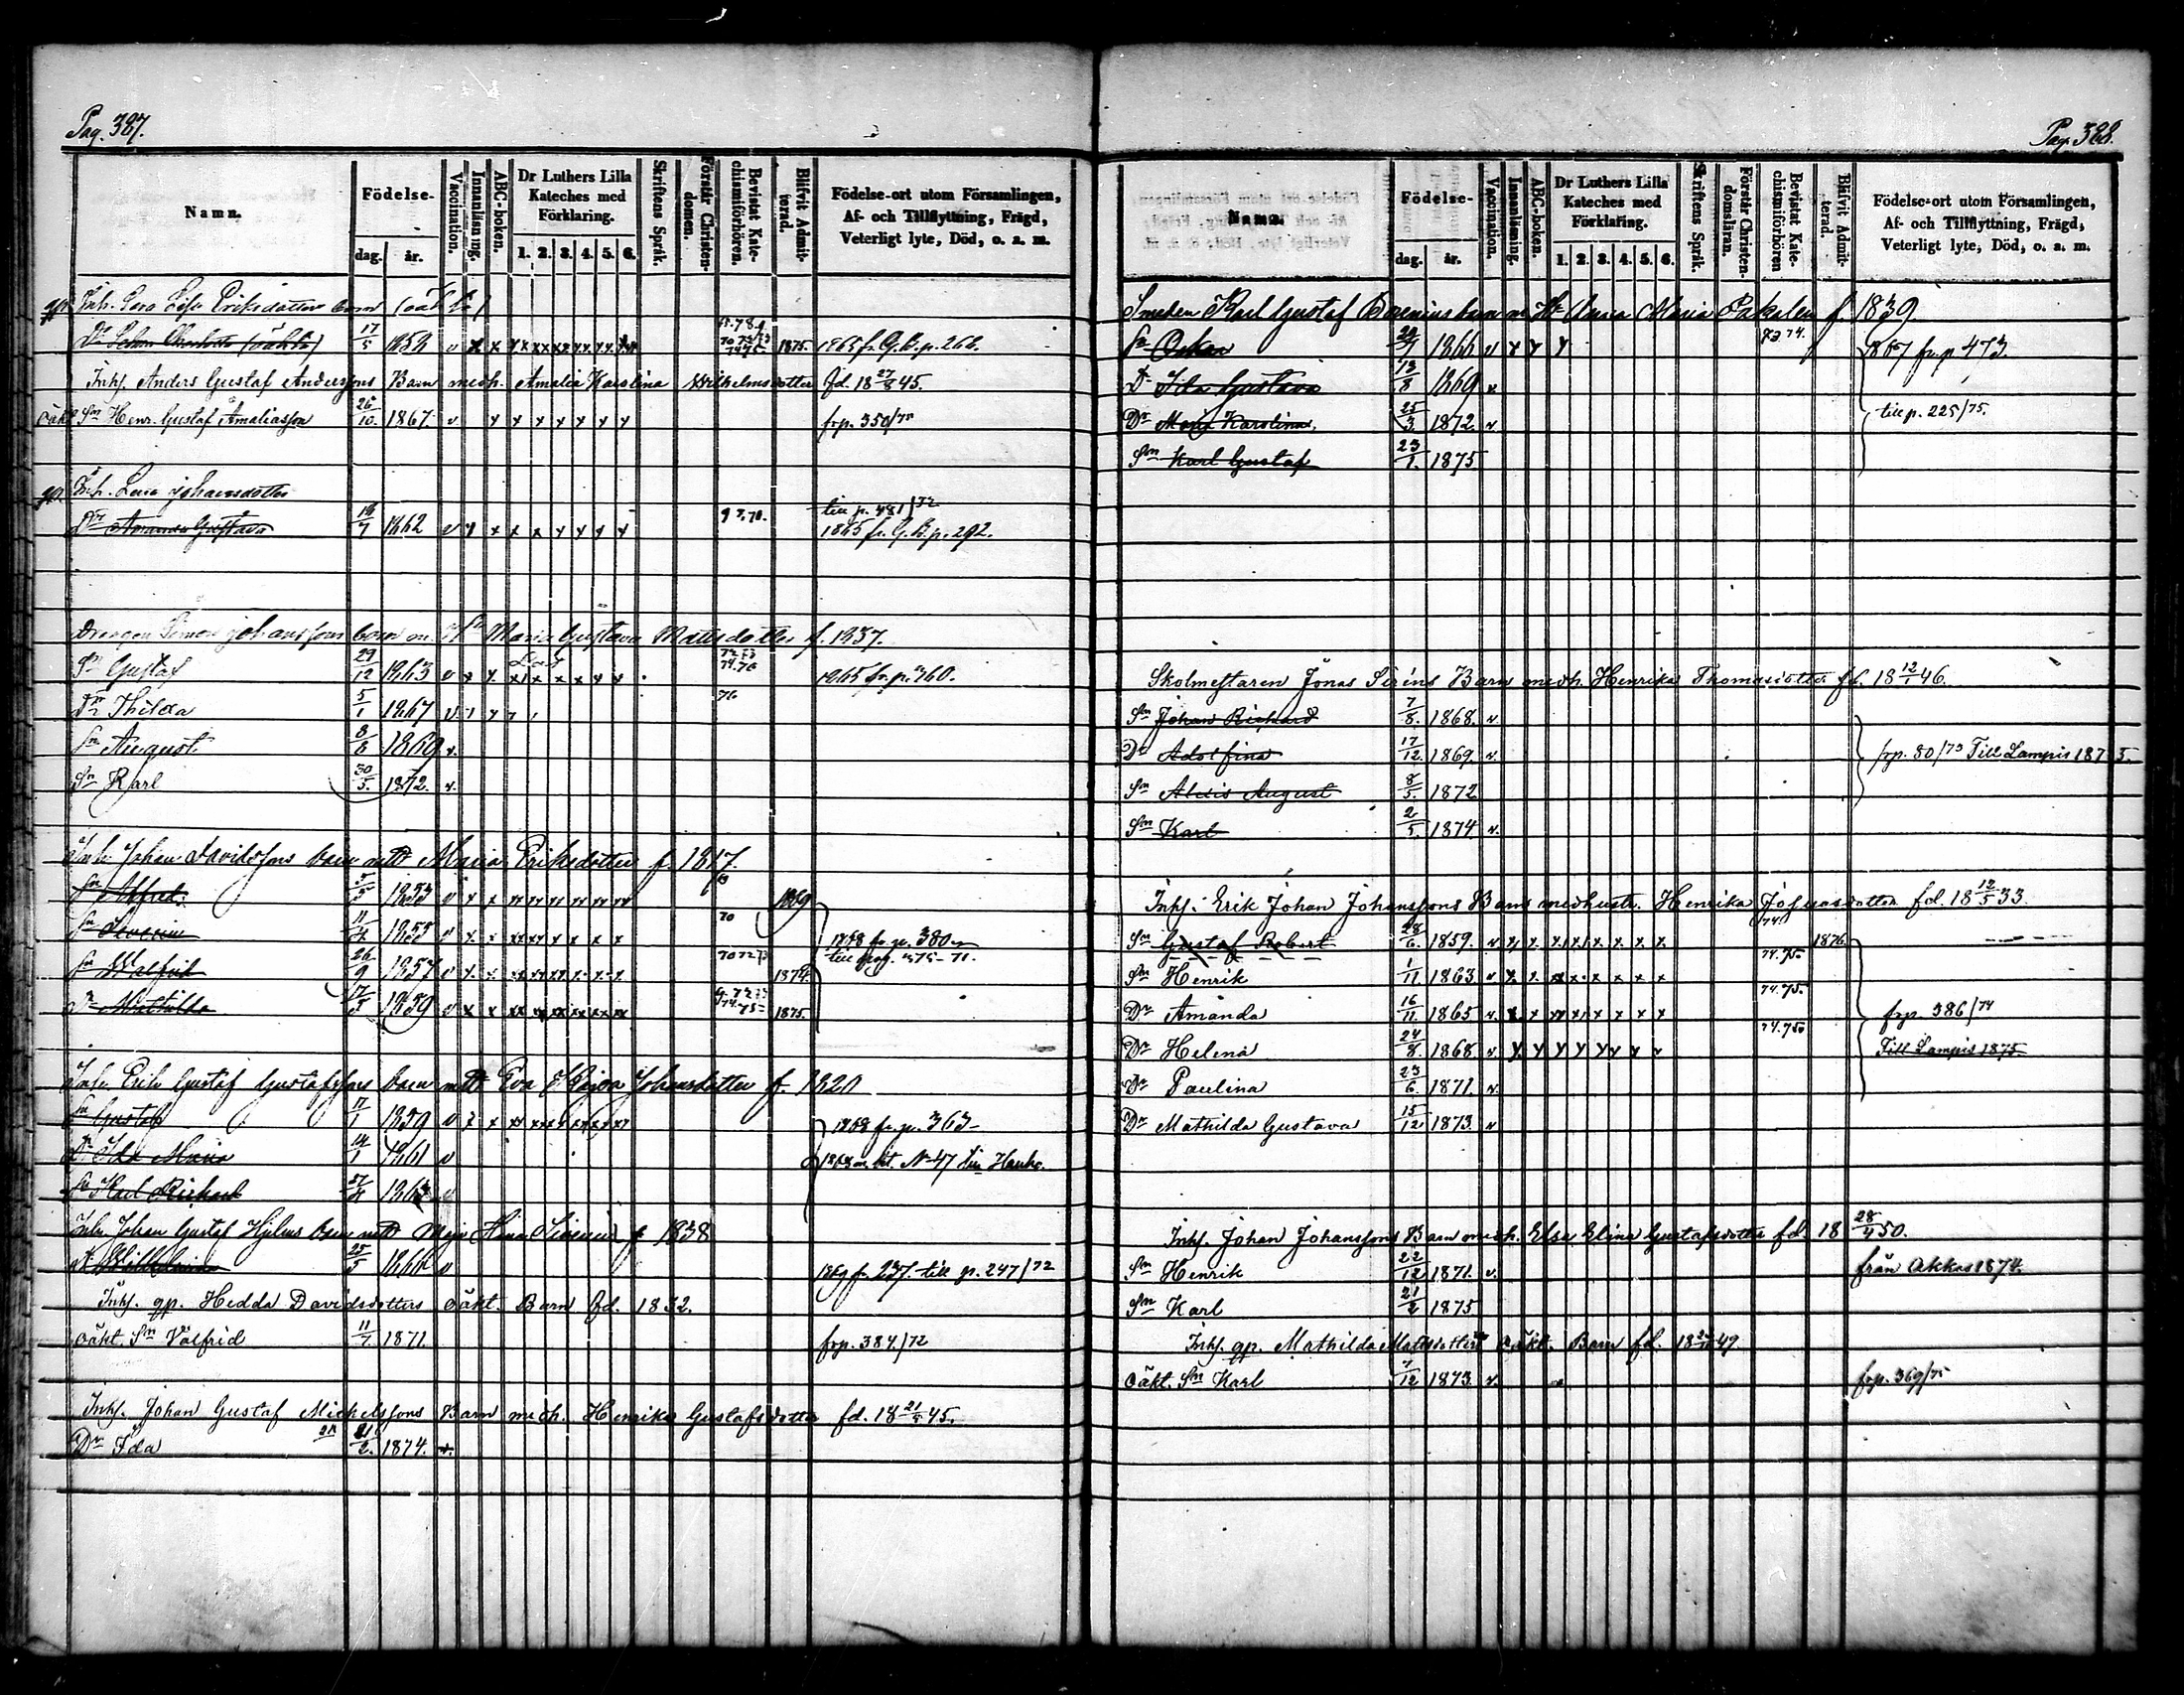 Pag. 387.
Namn.
Födelse-
dag.
år.
Vaccination.
Innanläsning.
ABC-boken.
Dr Luthers Lilla Kateches med Förklaring.
1. 2. 3. 4. 5. 6.
Skriftens Språk.
Förstår Christendomen.
Bevistat Katechismiförhören.
Blifvit Admitterad.
Födelse-ort utom Församlingen, Af- och Tillflyttning, Frägd, Veterligt lyte, Död, o. s. m.
Lisa Eriksdotters barn (oäkta)
Dr (oäkta) 17/5 1858 v 1875. 1865 fr. G.B. p. 268.
Inhs. Anders Gustaf Anderssons Barn med h. Amalia Karolina Wilhelmsdotter fd. 18 27/8 45.
oäkt Sn Henr. Gustaf Amaliasson 26/10 1867 v x x x x x x x frp. 350/75
Inh. Lena Johansdotter
till p. 481/72
Dr Amanda Gustava 18/7 1862 v x x x x x x x x 1865 fr. G.B. p. 292.
Dragon Simon Johanssons barn m. Hn Maria Gustava Mattsdotter f. 1837.
Sn Gustaf 29/12 1863 v x x 1865 fr. p. 360.
Dr Thilda 5/1 1867 v 76
Sn August 8/8 1869 v.
Sn Karl 30/5 1872 v.
Inh. Johan Davidssons barn m Maria Eriksdotter f. 1817.
Sn Alfred 1853 v x x 1869
Sn Severin 1855 v x x 70 1868 fr. p. 380
Sn Walfrid 26/9 1857 v x x 1874. till pag. 375-71.
Dr Mathilda 17/5 1859 v x x 1875.
Inh. Erik Gustaf Gustafssons barn m Eva Kajsa Johansdotter f. 1820
Sn Gustaf 17/1 1859 v x x 1868 fr. p. 363
Dr Ida Maria 14/1 1861 v 1868 m. bt. No 47 till Hauho.
Sn Karl Richard 1863 v
Inh. Johan Gustaf Hjelms barn m Maja Sirenius f. 1838
Dr Wilhelmina 25/5 1866 v 1869 fr. 237. till p. 247/72
Inhs. qp. Hedda Davidsdotters oäkt. Barn fd. 1832.
oäkt. Sn Valfrid 11/7 1871. frp. 384/72
Inhs. Johan Gustaf Michelssons Barn med h. Henrika Gustafsdotter fd. 18 21/8 45.
Dr Ida 21/2 1874.
Pag. 388.
Namn.
Födelse-
dag.
år.
Vaccination.
Innanläsning.
ABC-boken.
Dr Luthers Lilla Kateches med Förklaring.
1. 2. 3. 4. 5. 6.
Skriftens Språk.
Förstår Christendomsläran.
Bevistat Katechismiförhören
Blifvit Admitterad.
Födelse-ort utom Församlingen, Af- och Tillflyttning, Frägd, Veterligt lyte, Död, o. a. m.
Smeden Karl Gustaf Borenius barn m Hn Anna Maria Pakalen f. 1839
Sn Oskar 1866 v x x x 72 74. 1867 fr. p 473.
Dr Ida Gustava 13/8 1869 v
Dr Maria Karolina 25/3 1872. v till p. 225/75.
Sn Karl Gustaf 23/1 1875
Skolmästaren Jonas Siréns Barn med h. Henrika Thomasdotter fd. 18 12/1 46.
Sn Johan Richard 7/8 1868. v
Dr Adolfina 17/12 1869. v. frp. 80/73 Till Lampis 1875.
Sn Alexis August 8/5 1872
Sn Karl 2/5 1874 v.
Inhs. Erik Johan Johanssons Barn med hustr. Henrika Josuasdotter fd. 18 12/5 33.
Sn Gustaf Robert 28/6 1859. v 74. 1876.
Sn Henrik 1/11 1863 v 74.75
Dr Amanda 16/11 1865 v 74.75. frp. 386/74
Dr Helena 24/8 1868 v 74.75 Till Lampis 1875.
Dr Paulina 23/6 1871. v
Dr Mathilda Gustava 15/12 1873 v
Inhs. Johan Johanssons Barn med h. Elsa Elina Gustafsdotter fd. 18 28/4 50.
Sn Henrik 22/12 1871. v. från Akkas 1874.
Sn Karl 21/2 1875
Inhs. qp. Mathilda Matsdotters oäkt. Barn fd. 49
Oäkt. Sn Karl 7/12 1873. v. frp. 369/75